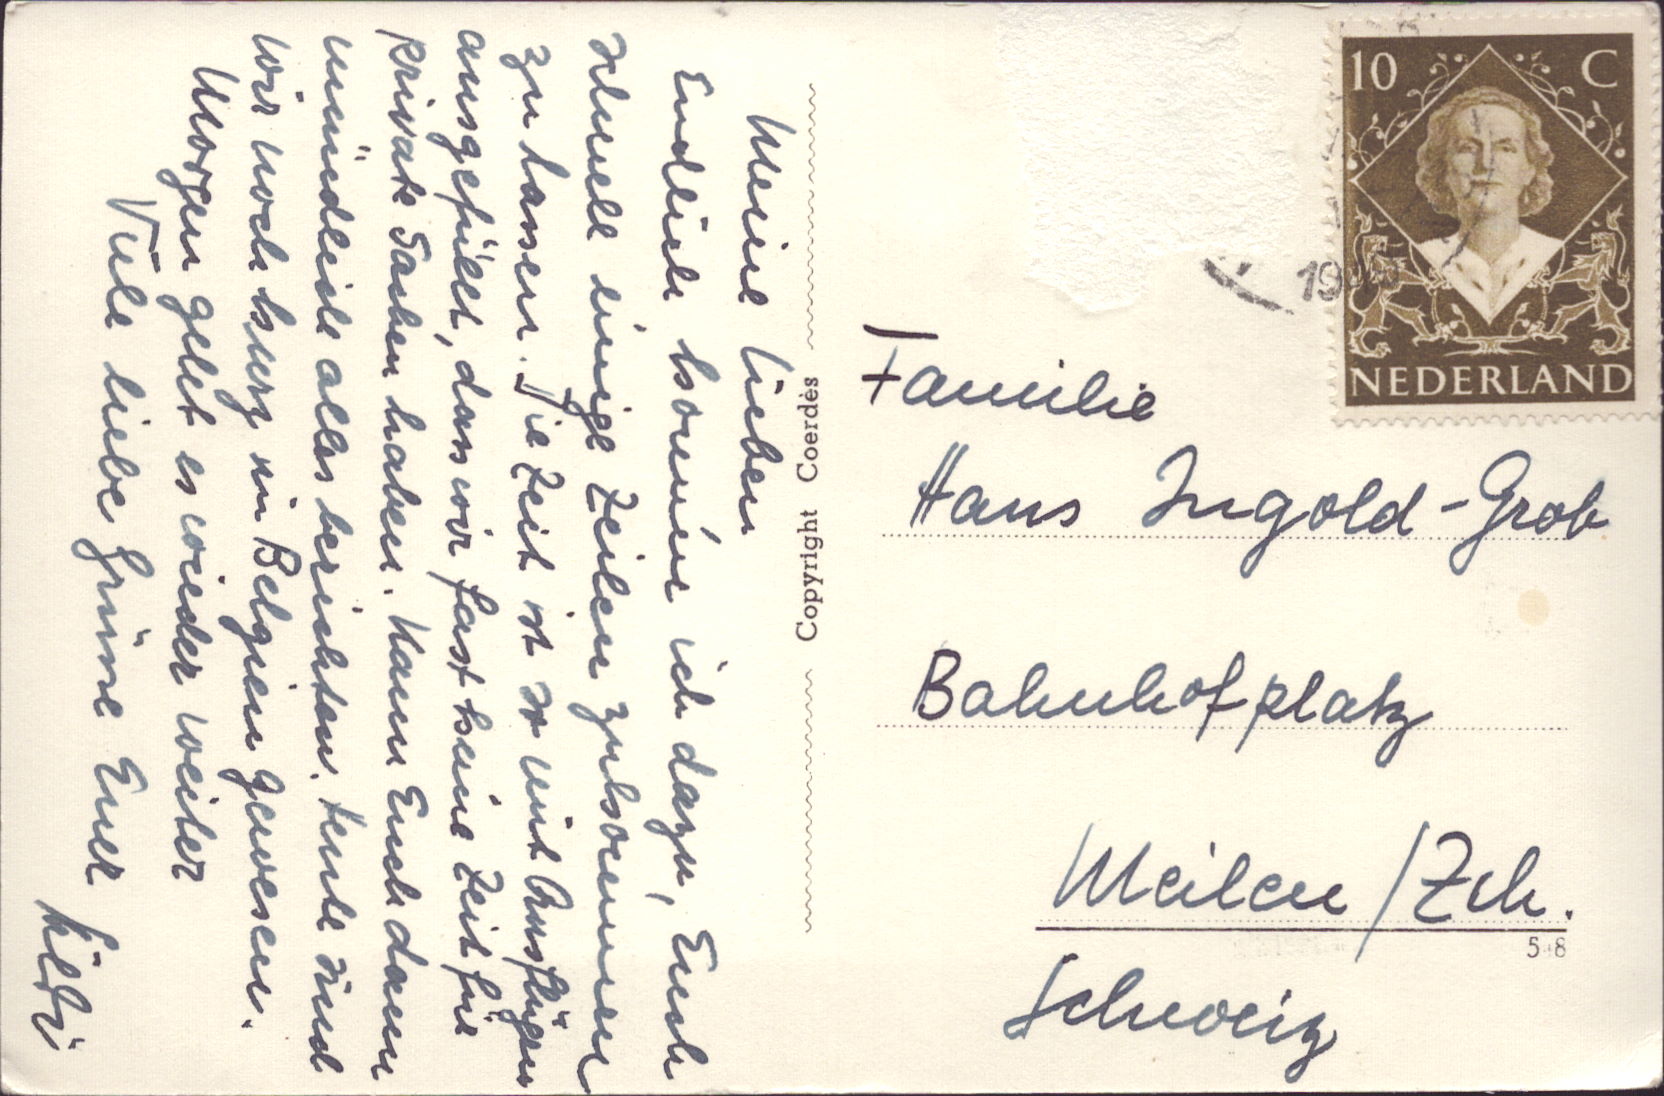 Meine lieben
Endlich komme ich dazu, Euch
schnell einige Zeilen zukommen
zu lassen. Die Zeit ist so mit Ausflügen
ausgefüllt, dass wir fast keine Zeit für
private Sachen haben. Kann Euch dann
mündlich alles berichten. Heute sind
wir noch kurz in Belgien gewesen.
Morgen geht es wieder weiter
Viele liebe Grüsse Euer
Copyright Coerdès
10 C
NEDERLAND
Familie
Hans Ingold-Grob
Bahnhofplatz
Meilen/Zch.
548
Schweiz